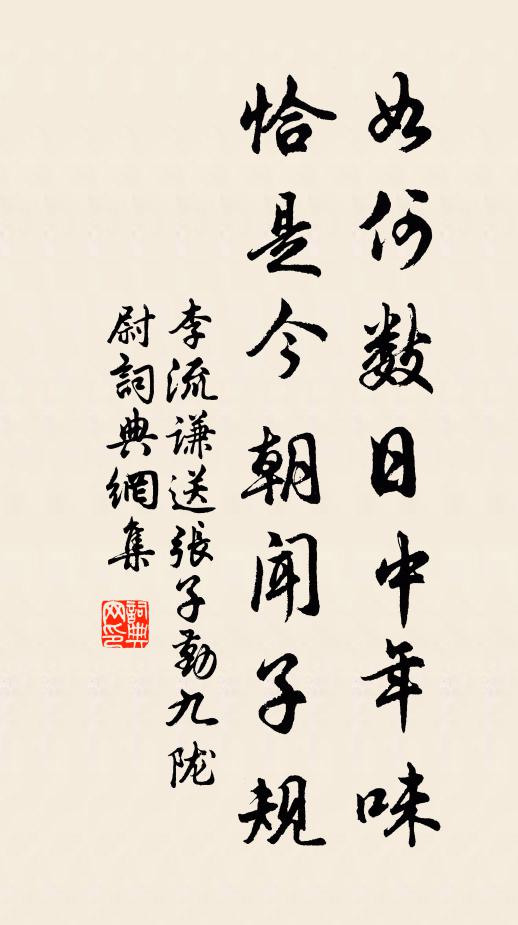 如何数日中年味
恰是今朝聞子規
李流謙送張子勤九陇
尉詞典網集
詞典
网印